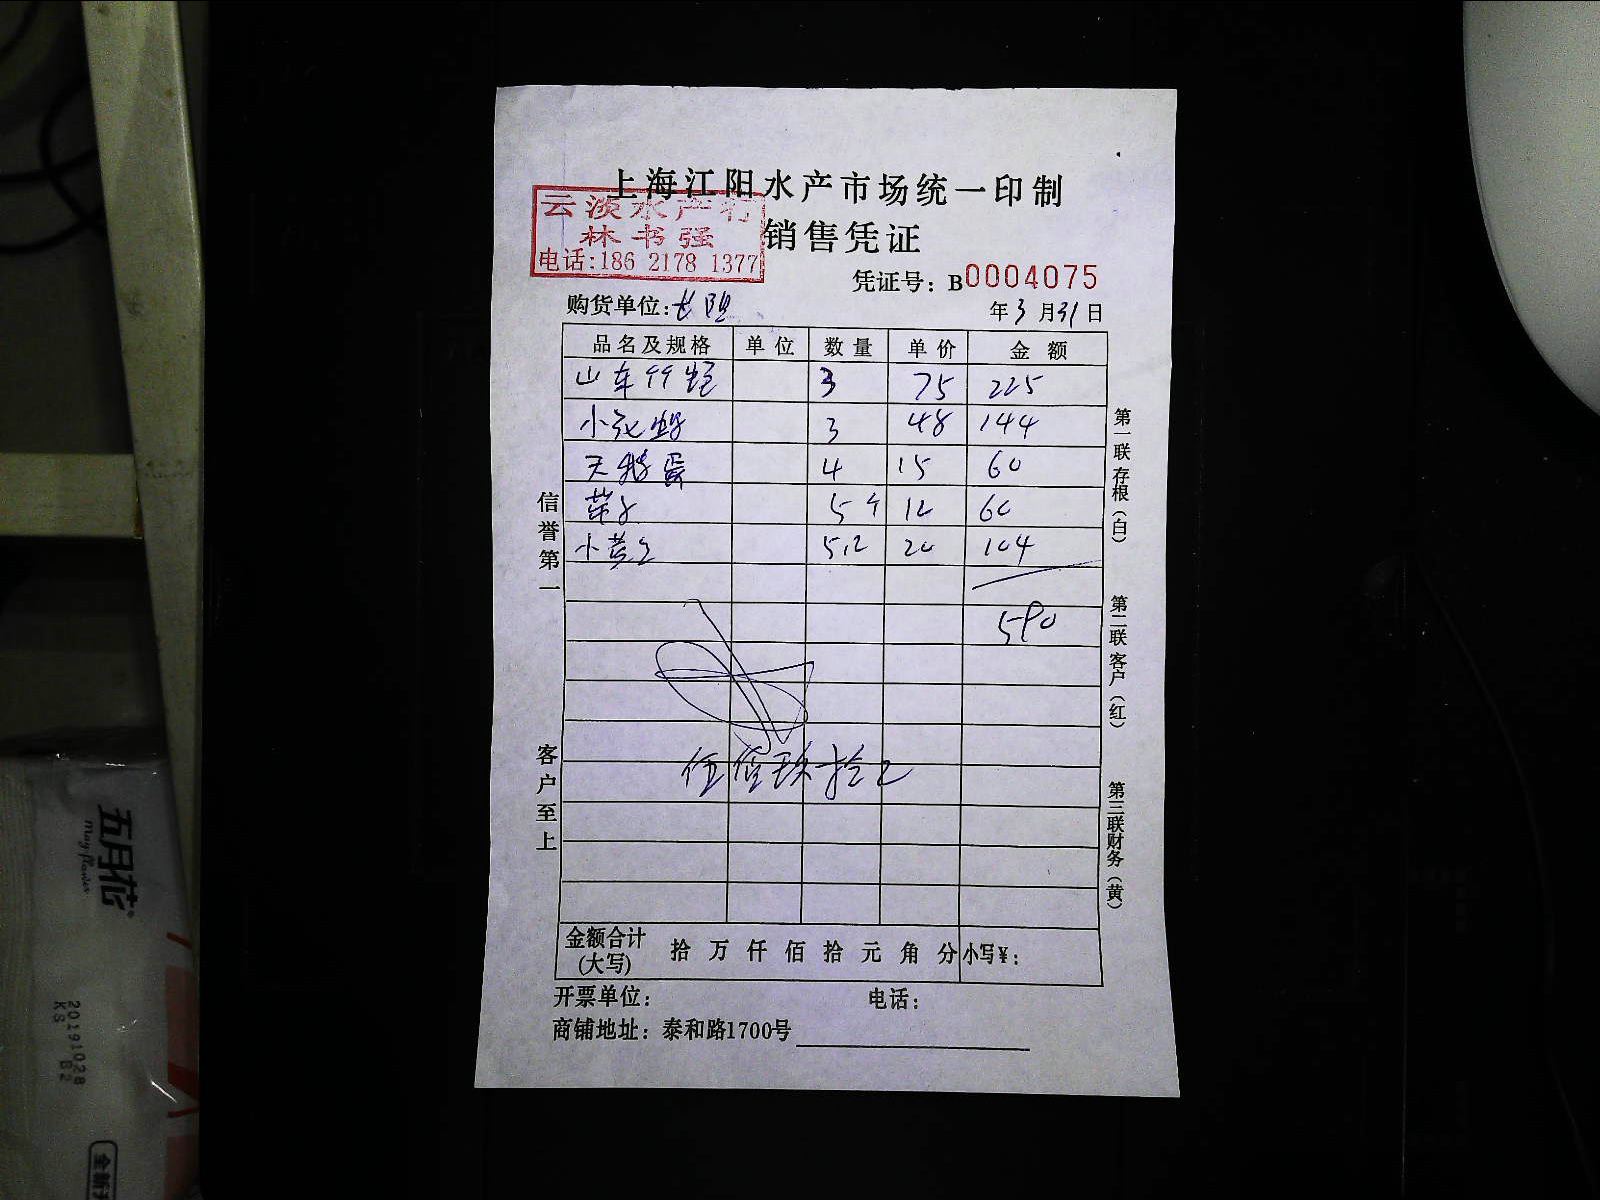 上海江阳水产市场统一印制
云淡水产行
林书强
电话:186 2178 1377
销售凭证
凭证号: B0004075
购货单位:
年 3 月 31 日
品名及规格 单位 数量 单价 金额
山东 3 75 225
小 3 48 144
天鹅蛋 4 15 60
5个 12 60
小黄 5.2 20 104
590
伍佰玖拾元
信誉第一
客户至上
第一联 存根(白)
第二联 客户(红)
第三联 财务(黄)
金额合计(大写) 拾 万 仟 佰 拾 元 角 分 小写¥:
开票单位: 电话:
商铺地址: 泰和路1700号
五月花
May flower
20191028
KS B2